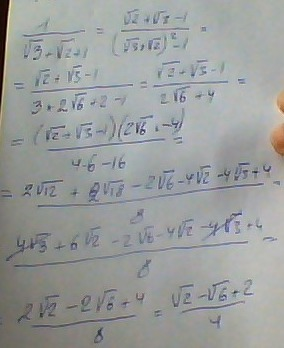 1/(√3+√2+1) = (√2+√3-1)/((√3+√2)²-1) =
= (√2+√3-1)/(3+2√6+2-1) = (√2+√3-1)/(2√6+4) =
= (√2+√3-1)(2√6-4)/(4·6-16) =
= (2√12+2√18-2√6-4√2-4√3+4)/8 =
(4√3+6√2-2√6-4√2-4√3+4)/8 =
(2√2-2√6+4)/8 = (√2-√6+2)/4